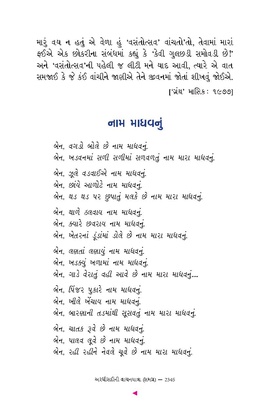 મારું વય ન હતું એ વેળા હું 'વસંતોત્સવ' વાંચતો'તો, તેવામાં મારાં
ફઈએ એક છોકરીના સંબંધમાં કહ્યું કે 'કેવી ગુલછડી સમોવડી છે!'
અને 'વસંતોત્સવ'ની પહેલી જ લીટી મને યાદ આવી, ત્યારે એ વાત
સમજાઈ કે જે કંઈ વાંચીને જાણીએ તેને જીવનમાં જોતાં શીખવું જોઈએ.
['ગ્રંથ' માસિક: ૧૯૭૭]
નામ માધવનું
બેન. વગડો બોલે છે નામ માધવનું.
બેન. ખડવનમાં સળી સળીમાં સળવળતું નામ મારા માધવનું.
બેન. ઝૂલે વડવાઈએ નામ માધવનું.
બેન. છાંયે આળોટે નામ માધવનું.
બેન. થડ થડ પર છુપાતું મલકે છે નામ મારા માધવનું.
બેન. થાળે ઠલવાય નામ માધવનું.
બેન. ક્યારે છલરાય નામ માધવનું.
બેન. ખેતરનાં ડૂંડાંમાં ડોલે છે નામ મારા માધવનું.
બેન. લણતાં લણાયું નામ માધવનું.
બેન. ખડક્યું ખળામાં નામ માધવનું.
બેન. ગાડે વેરાતું વહી આવે છે નામ મારા માધવનું...
બેન. પિંજર પુકારે નામ માધવનું.
બેન. ખીલે બંધાય નામ માધવનું.
બેન. બારણાની તડમાંથી સૂસવતું નામ મારા માધવનું.
બેન. ચાતક રૂવે છે નામ માધવનું.
બેન. પાલવ લૂવે છે નામ માધવનું.
બેન. રહી રહીને નેવલે ચૂવે છે નામ મારા માધવનું.
અરધીસદીની વાચનયાત્રા (૧થી૪) — 2345